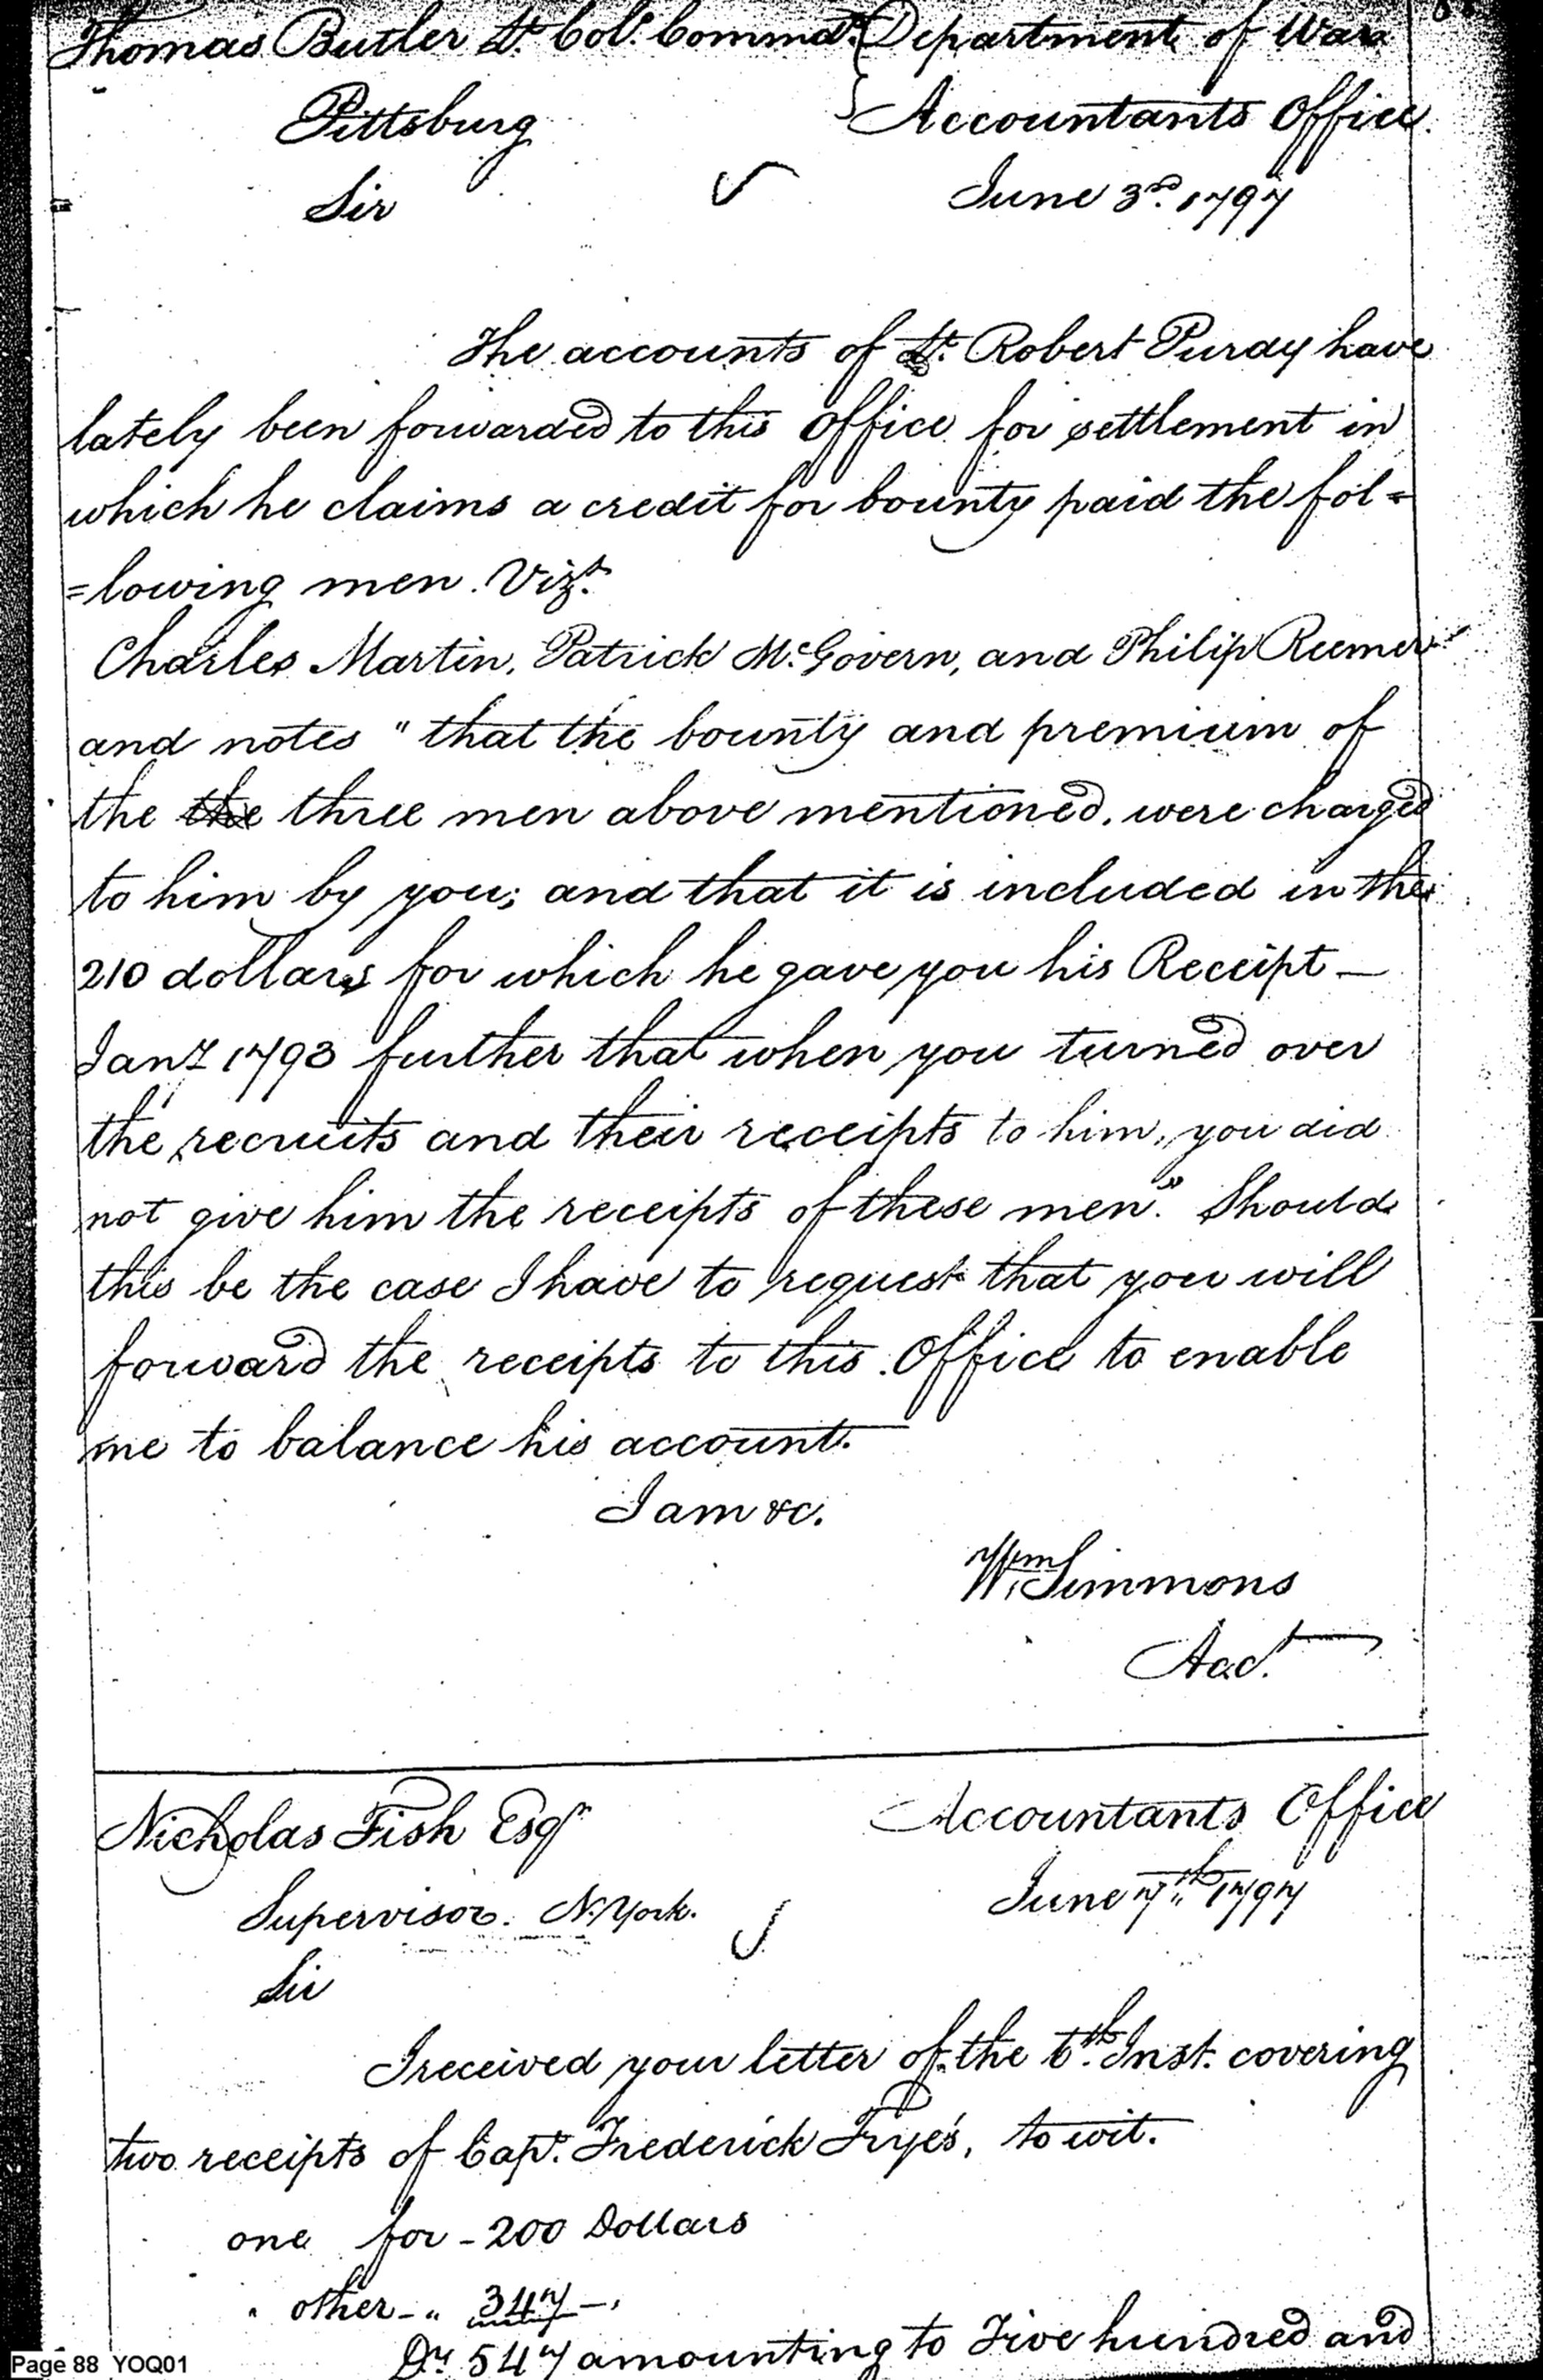 Thomas Butler Lt. Col. Commdt. Department of War
Pittsburg Accountants Office
Sir June 3rd. 1797
The accounts of Lt. Robert Purdy have
lately been forwarded to this Office for settlement in
which he claims a credit for bounty paid the fol=
=lowing men. Vizt.
Charles Martin, Patrick McGovern, and Philip Reemer
and notes "that the bounty and premium of
the the three men above mentioned, were charged
to him by you; and that it is included in the
210 dollars for which he gave you his Receipt —
Jany 1793 further that when you turned over
the recruits and their receipts to him, you did
not give him the receipts of these men". Should
this be the case I have to request that you will
forward the receipts to this Office to enable
me to balance his account.
I am &c.
Wm Simmons
Acct.
Nicholas Fish Esqr Accountants Office
Supervisor. N. York. June 7th 1797
Sir
I received your letter of the 6th. Inst. covering
two receipts of Capt. Frederick Frye's, to wit.
one for - 200 Dollars
" other - " 347 —
Drs 547 amounting to Five hundred and
Page 88 YOQ01